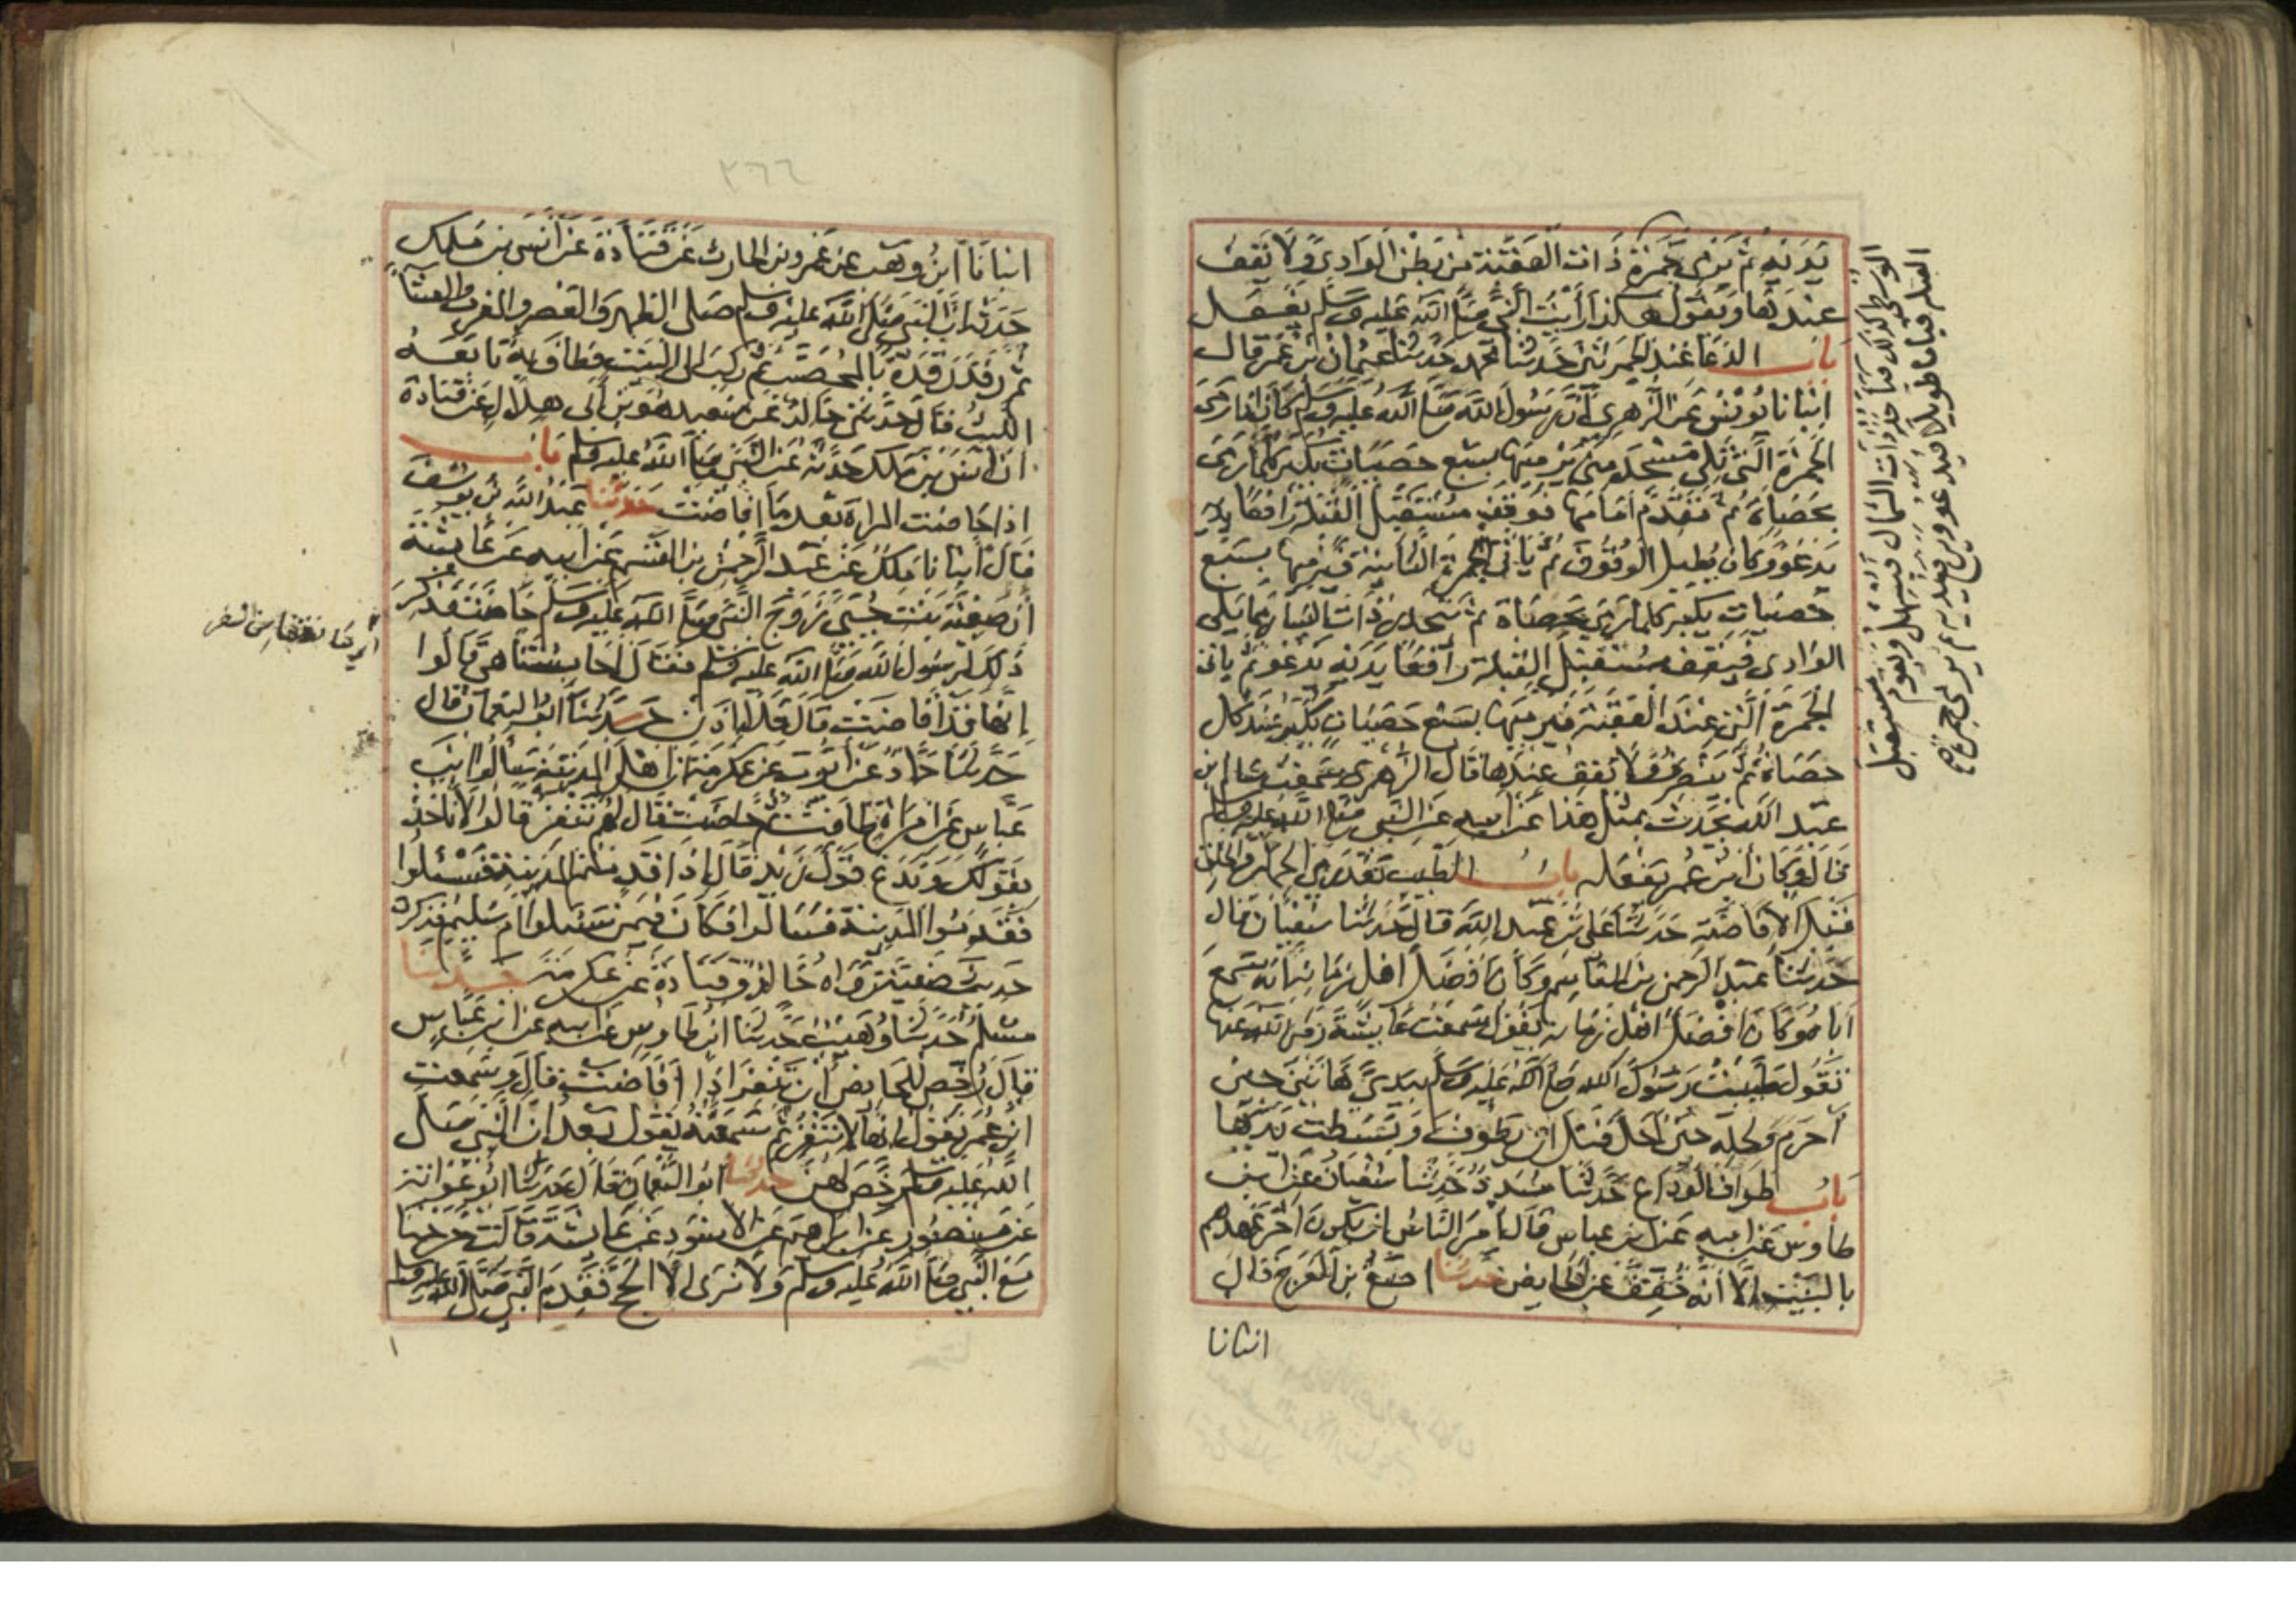 يديه ثم يرمي جمرة ذات العقبة من بطن الوادي ولا يقف
عندها ويقول هكذا رأيت النبي صلى الله عليه وسلم يفعل
باب الدعا عند الجمرتين حدثنا محمد حدثنا عثمان بن عمر قال
انبانا يونس عن الزهري ان رسول الله صلى الله عليه وسلم كان اذا رمى
الجمرة التي تلي مسجد منى يرميها بسبع حصيات يكبر كلما رمى
بحصاة ثم تقدم امامها فوقف مستقبل القبلة رافعا يديه
يدعو وكان يطيل الوقوف ثم ياتي الجمرة الثانية فيرميها بسبع
حصيات يكبر كلما رمى بحصاة ثم ينحدر ذات اليسار مما يلي
الوادي فيقف مستقبل القبلة رافعا يديه يدعو ثم ياتي
الجمرة التي عند العقبة فيرميها بسبع حصيات يكبر عند كل
حصاة ثم ينصرف ولا يقف عندها قال الزهري سمعت سالم ابن
عبد الله يحدث بمثل هذا عن ابيه عن النبي صلى الله عليه وسلم
قال وكان ابن عمر يفعله باب الطيب بعد رمي الجمار والحلق
قبل الافاضة حدثنا علي بن عبد الله قال حدثنا سفيان قال
حدثنا عبد الرحمن بن القاسم وكان افضل اهل زمانه انه سمع
اباه وكان افضل اهل زمانه يقول سمعت عايشة رضي الله عنها
تقول طيبت رسول الله صلى الله عليه وسلم بيدي هاتين حين
احرم ولحله حين احل قبل ان يطوف وبسطت يديها
باب طواف الوداع حدثنا مسدد حدثنا سفيان عن ابن
طاوس عن ابيه عن ابن عباس قال امر الناس ان يكون اخر عهدهم
بالبيت الا انه خفف عن الحايض حدثنا اصبغ بن الفرج قال
انبانا
الوسطى كذلك فياخذ ذات الشمال فيسهل ويقوم مستقبل
القبلة قياما طويلا فيدعو ويرفع يديه ثم يرمي الجمرة
٣٦٦
انبانا ابن وهب عن عمرو بن الحارث عن قتادة عن انس بن ملك
حدثه ان النبي صلى الله عليه وسلم صلى الظهر والعصر والمغرب والعشا
ثم رقد رقدة بالمحصب ثم ركب الى البيت فطاف به تابعه
الليث قال حدثني خالد عن سعيد هو بن ابي هلال عن قتادة
ان انس بن ملك حدثه عن النبي صلى الله عليه وسلم باب
اذا حاضت المراة بعد ما افاضت حدثنا عبد الله بن يوسف
قال انبانا ملك عن عبد الرحمن بن القسم عن ابيه عن عايشة
ان صفية بنت حيي زوج النبي صلى الله عليه وسلم حاضت فذكر
ذلك لرسول الله صلى الله عليه وسلم فقال احابستنا هي قالوا
انها قد افاضت قال فلا اذن حدثنا ابو النعمان قال
حدثنا حماد عن ايوب عن عكرمة ان اهل المدينة سالوا ابن
عباس عن امراة طافت ثم حاضت قال لهم تنفر قالوا لا ناخذ
بقولك وندع قول زيد قال اذا قدمتم المدينة فسئلوا
فقدموا المدينة فسالوا فكان فيمن سئلوا ام سليم فذكرت
حديث صفية رواه خالد وقتادة عن عكرمة حدثنا
مسلم حدثنا وهيب حدثنا ابن طاوس عن ابيه عن ابن عباس
قال رخص للحايض ان تنفر اذا افاضت قال وسمعت
ابن عمر يقول انها لا تنفر ثم سمعته يقول بعد ان النبي صلى
الله عليه وسلم رخص لهن حدثنا ابو النعمان قال حدثنا ابو عوانة
عن منصور عن ابراهيم عن الاسود عن عايشة قالت خرجنا
مع النبي صلى الله عليه وسلم ولا نرى الا الحج فقدم النبي صلى الله عليه وسلم